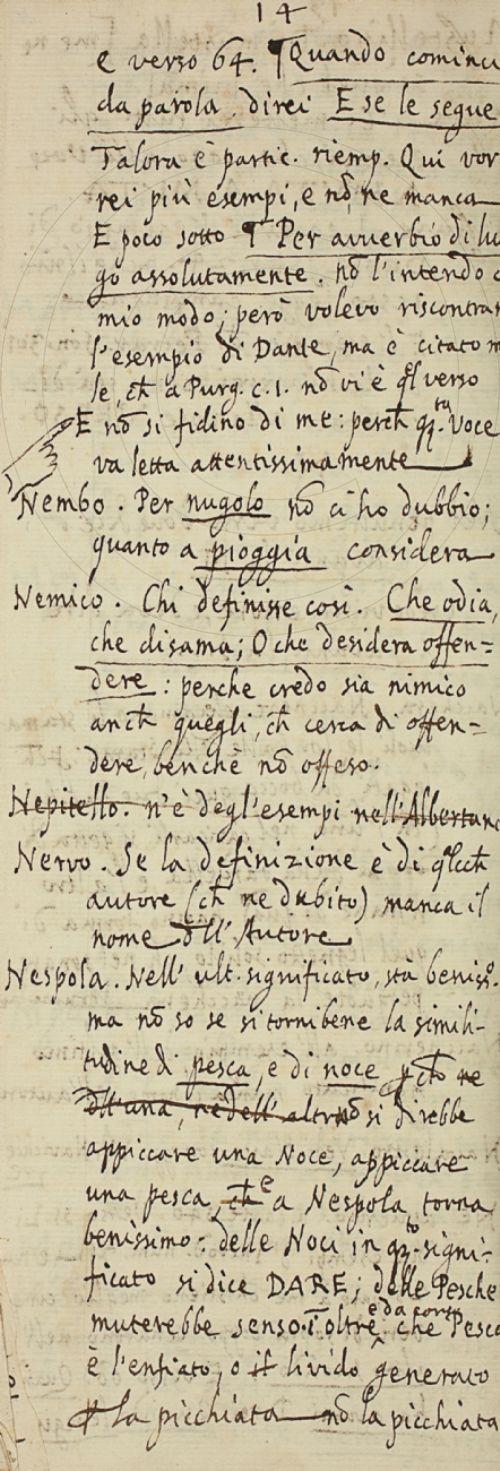 14
e verso 64. ¶ Quando cominci
da parola. direi E se le segue
Talora è partic. riemp. Qui vor
rei più esempi, e nō ne manca
E poco sotto ¶ Per avverbio di lu
go assolutamente. nō l'intendo a
mio modo; però volevo riscontrar
l'esempio di Dante, ma è citato m
le, ch̄ a Purg. c. 1. nō vi è ql verso
E nō si fidino di me: perch̄ q.ta voce
va letta attentissimamente
Nembo. Per nugolo nō ci ho dubbio;
quanto a pioggia considera
Nemico. Chi definisse così. Che odia,
che disama; O che desidera offen=
dere: perche credo sia nimico
anch̄ quegli, ch̄ cerca di offen-
dere, benchè nō offeso.
Nepitello. n'è degl'esempi nell'Albertano
Nervo. Se la definizione è di qlch̄
autore (ch̄ ne dubito) manca il
nome dll'Autore
Nespola. Nell' ult. significato, stà beniss.o
ma nō so se si torni bene la simili-
tudine di pesca, e di noce, ne
dll'una, nè dell'altra nō si direbbe
appiccare una Noce, appiccare
una pesca, ch̄ e a Nespola torna
benissimo: delle Noci in q.to signi-
ficato si dice DARE; delle Pesche
muterebbe senso. Ī oltre che Pesca
è l'enfiato, o il livido generato
la picchiata nō la picchiata